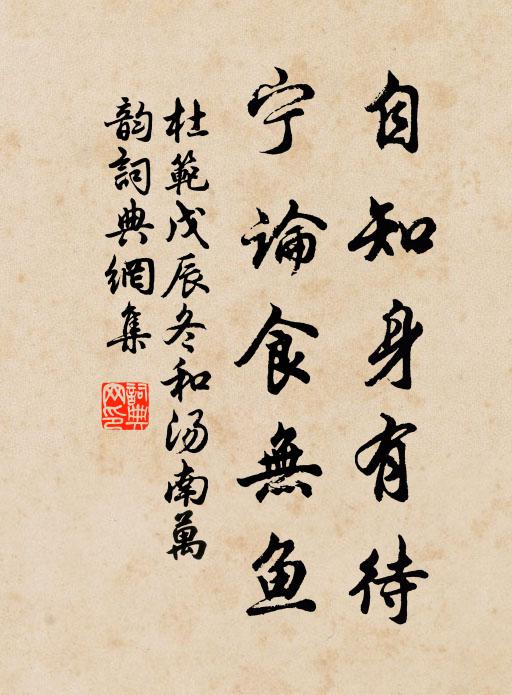 自知身有待
宁論食無鱼
杜範戊辰冬和汤南萬
韵詞典網集
詞典网印